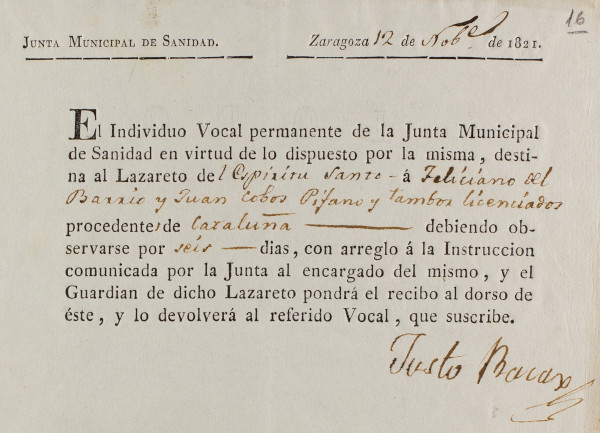 16
JUNTA MUNICIPAL DE SANIDAD. Zaragoza 12 de Nobe. de 1821.
El Individuo Vocal permanente de la Junta Municipal
de Sanidad en virtud de lo dispuesto por la misma, desti-
na al Lazareto del Espiritu Santo - á Feliciano del
Barrio y Juan Cobos Pifano y tambor licenciados
procedentes de Cataluña debiendo ob-
servarse por seis dias, con arreglo á la Instruccion
comunicada por la Junta al encargado del mismo, y el
Guardian de dicho Lazareto pondrá el recibo al dorso de
éste, y lo devolverá al referido Vocal, que suscribe.
Justo